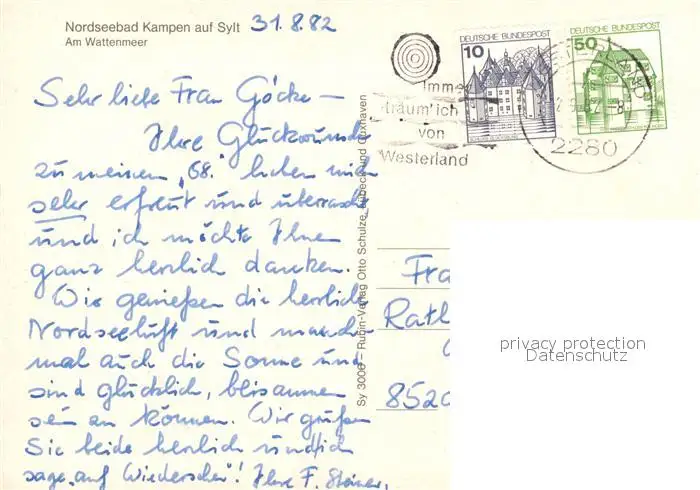 Nordseebad Kampen auf Sylt 31.8.82
Am Wattenmeer
Sehr liebe Frau Göcke –
Ihre Glückwünsche
zu meinem „68." haben mich
sehr erfreut und überrascht
und ich möchte Ihnen
ganz herzlich danken.
Wir genießen die herrliche
Nordseeluft und manch-
mal auch die Sonne und
sind glücklich, beisammen
sein zu können. Wir grüßen
Sie beide herzlich und ich
sage „auf Wiedersehen"! Ihre F. Steiner.
Sy 3006 – Rubin-Verlag Otto Schulze, Lübeck und Cuxhaven
Imme
träum'ich
von
Westerland
10
DEUTSCHE BUNDESPOST
50
DEUTSCHE BUNDESPOST
2280
Fra
Rath
8520
privacy protection
Datenschutz